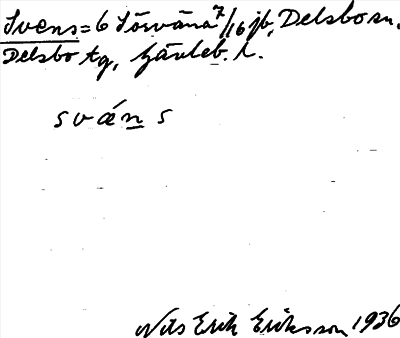 Svens = 6 Sörvåna 7/16 jb, Delsbo sn.
Delsbo tg, Gävleb. l.
sván s
Nils Erik Eriksson 1936